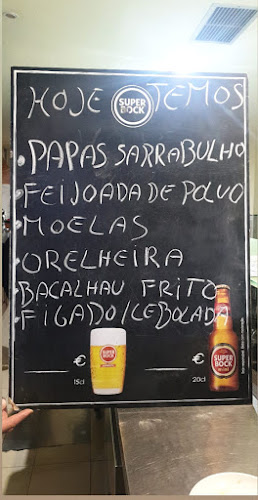 HOJE SUPER BOCK TEMOS
• PAPAS SARRABULHO
• FEIJOADA DE POLVO
• MOELAS
• ORELHEIRA
• BACALHAU FRITO
• FIGADO/CEBOLADA
€ €
SUPER BOCK SUPER BOCK
15cl 20cl